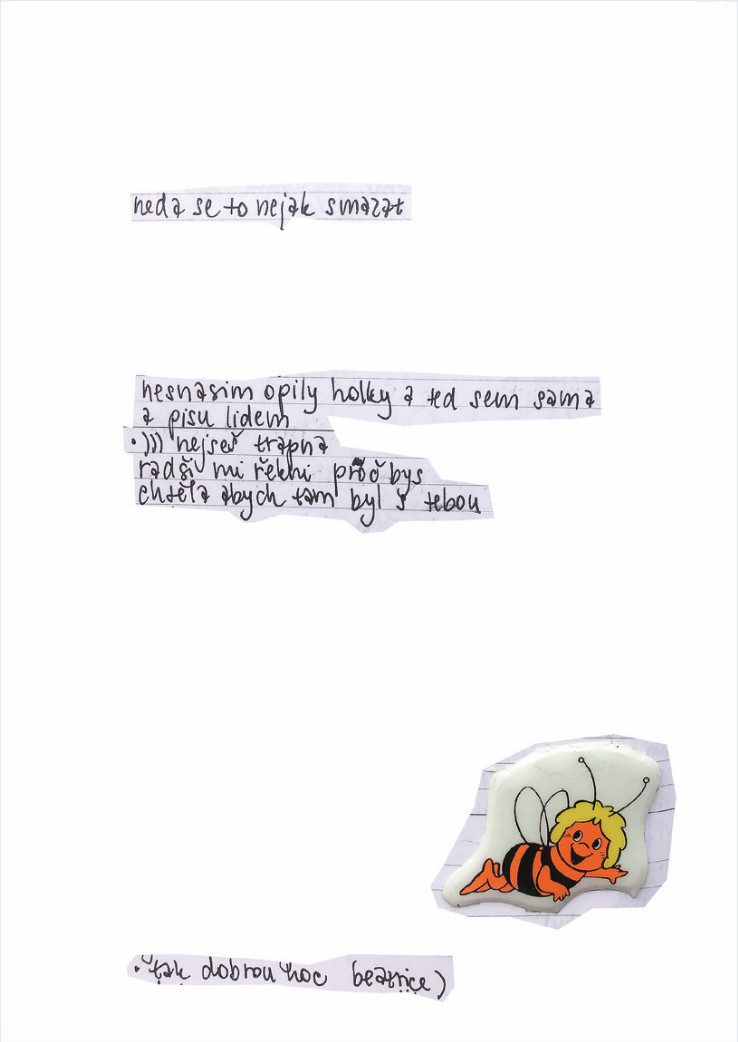 neda se to nejak smazat
nesnasim opily holky a ted sem sama
a pisu lidem
•))) nejseš trapna
radši mi řekni proč bys
chtěla abych tam byl s tebou
•tak dobrou noc beatrice)